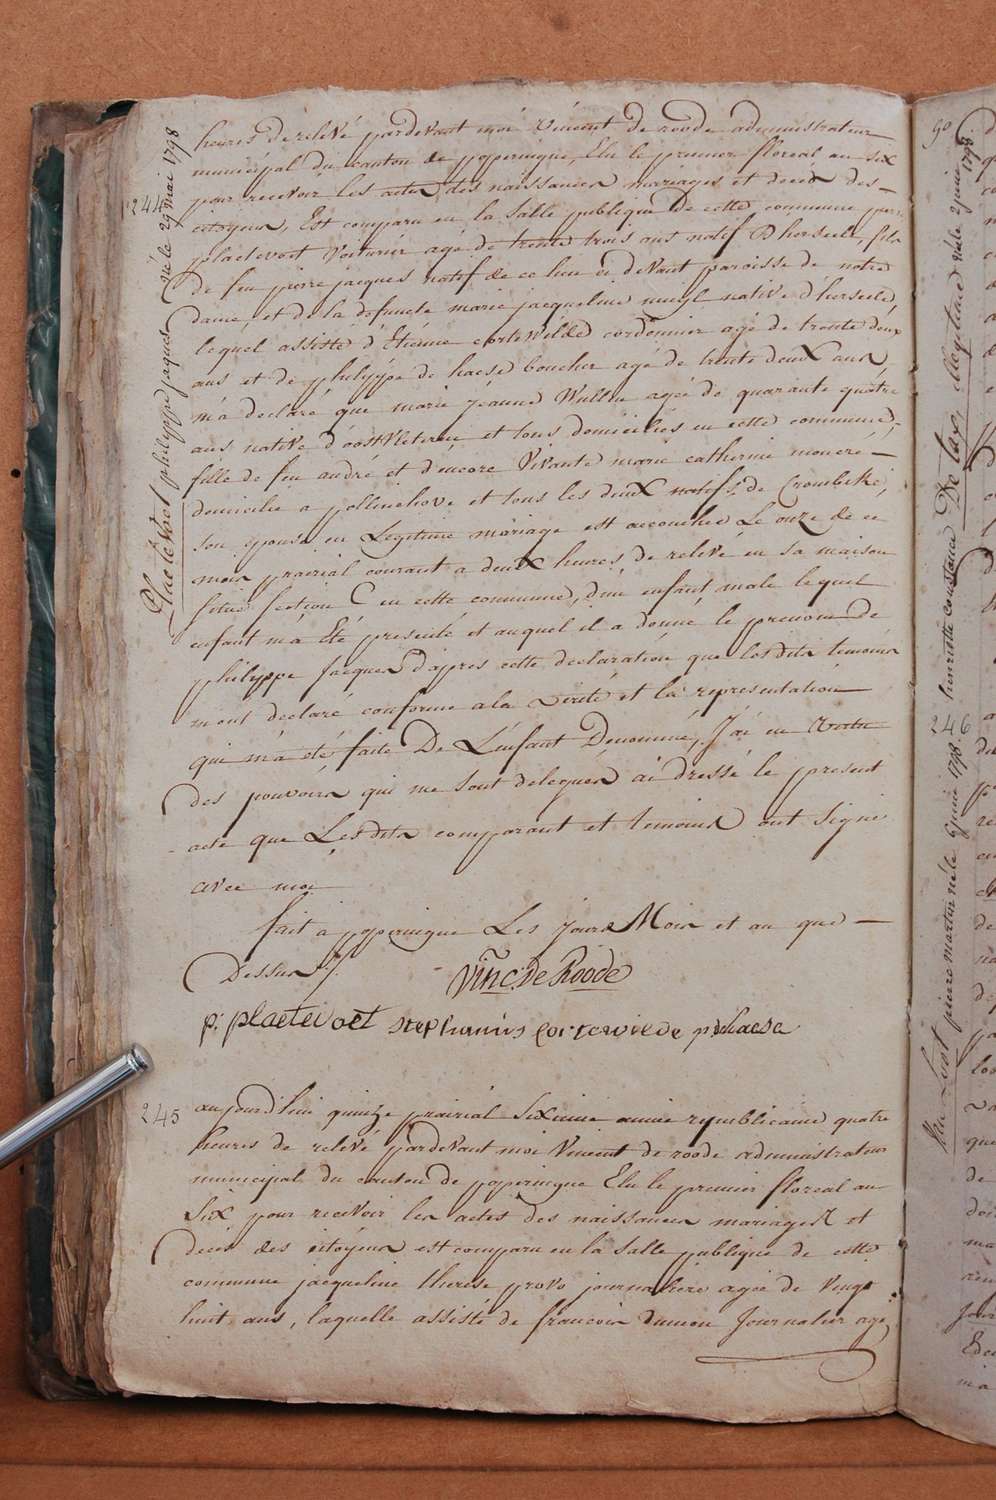 heures de relevé pardevant moi Vincent de roode administrateur
municipal du canton de poperingue, Elu le premier floreal an six
pour recevoir les actes des naissances mariages et deces des
citoyens, Est comparu en la Salle publique De cette commune
plaetevoet Voiturier agé de trente trois ans natif D'herseele, fils
De feu pierre jacques natif de ce lieu ci devant paroisse de notre
Dame, et de la defuncte marie jacqueline natif d'herseele,
lequel assisté d'Etienne corteWilde cordonnier agé de trente deux
ans et de philyppe de haese boucher agé de trente deux ans
m'a declaré que marie jeanne Wullus agée de quarante quatre
ans native d'oostVleteren et tous domiciliés en cette commune,
fille de feu andré et d'encore Vivante marie catherine
domicilie a pollinchove et tous les deux natifs de Crombeke,
son epouse en Legitime mariage est accouchée Le onze de ce
mois prairial courant a deux heures de relevé en sa maison
située Section C en cette commune, d'un enfant male lequel
enfant m'a Eté presenté et auquel il a donné le prenom De
philyppe Jacques d'apres cette declaration que lesdits temoins
m'ont declaré conforme a la verité et la representation
qui m'a été faite De L'enfant Denommé, J'ai en Vertu
des pouvoirs qui me sont delegues ai dressé le present
acte que Lesdits comparant et temoins ont Signé
avec moi
fait a poperingue Les jours Mois et an que
Dessus ./.
Vinc: De Roode
p: plaetevoet stephanus cortewilde p dhaese
244
Plaetevoet philyppe jacques né le 29 mai 1798
245
aujourd'hui quinze prairial Sixieme année republicaine quatre
heures de relevé pardevant moi Vincent de roode administrateur
municipal du canton de poperingue Elu le premier floreal an
Six pour recevoir les actes des naissances mariages et
deces des citoyens est comparu en la Salle publique de cette
commune jacqueline therese provo journaliere agée de Vingt
huit ans, laquelle assisté de francois Journalier agé
90
De tax, henriette constance née le 2 juin 1798
246
pierre martin né le 6 juin 1798